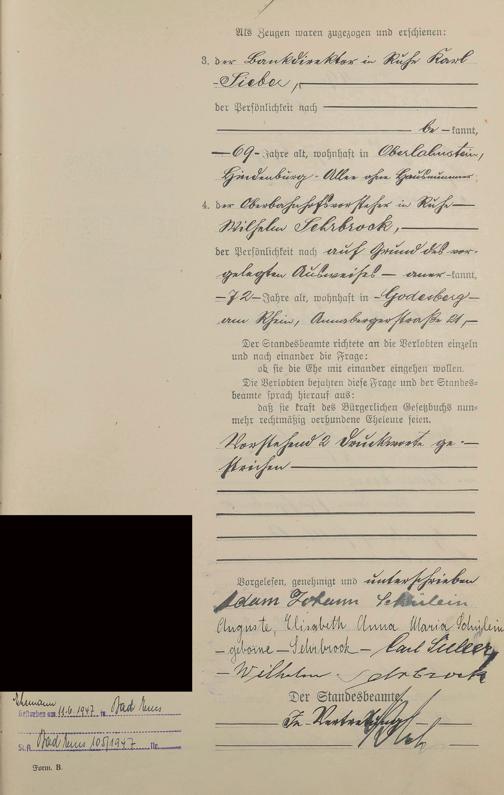 Als Zeugen waren zugezogen und erschienen:
3. der Bankdirektor in Ruhe Karl
Sieber,
der Persönlichkeit nach
be-kannt,
-69- Jahre alt, wohnhaft in Oberlahnstein,
Hindenburg-Allee ohne Hausnummer
4. der Oberbahnhofsvorsteher in Ruhe
Wilhelm Sehrbrock,
der Persönlichkeit nach auf Grund des vor-
gelegten Ausweises - aner-kannt,
-72- Jahre alt, wohnhaft in -Godesberg-
am Rhein, Annabergerstraße 21,-
Der Standesbeamte richtete an die Verlobten einzeln
und nach einander die Frage:
ob sie die Ehe mit einander eingehen wollen.
Die Verlobten bejahten diese Frage und der Standes-
beamte sprach hierauf aus:
daß sie kraft des Bürgerlichen Gesetzbuchs nun-
mehr rechtmäßig verbundene Eheleute seien.
Vorstehend 2 Druckworte ge-
strichen
Vorgelesen, genehmigt und unterschrieben
Adam Johann Schülein
Auguste, Elisabeth Anna Maria Schülein
- geborne - Sehrbrock - Carl Sieber,
- Wilhelm Sehrbrock
Der Standesbeamte.
In Vertretung
Ehemann
Gestorben am 11.6.1947 in Bad Ems
St.A. Bad Ems 105/1947 Nr.
Form. B.